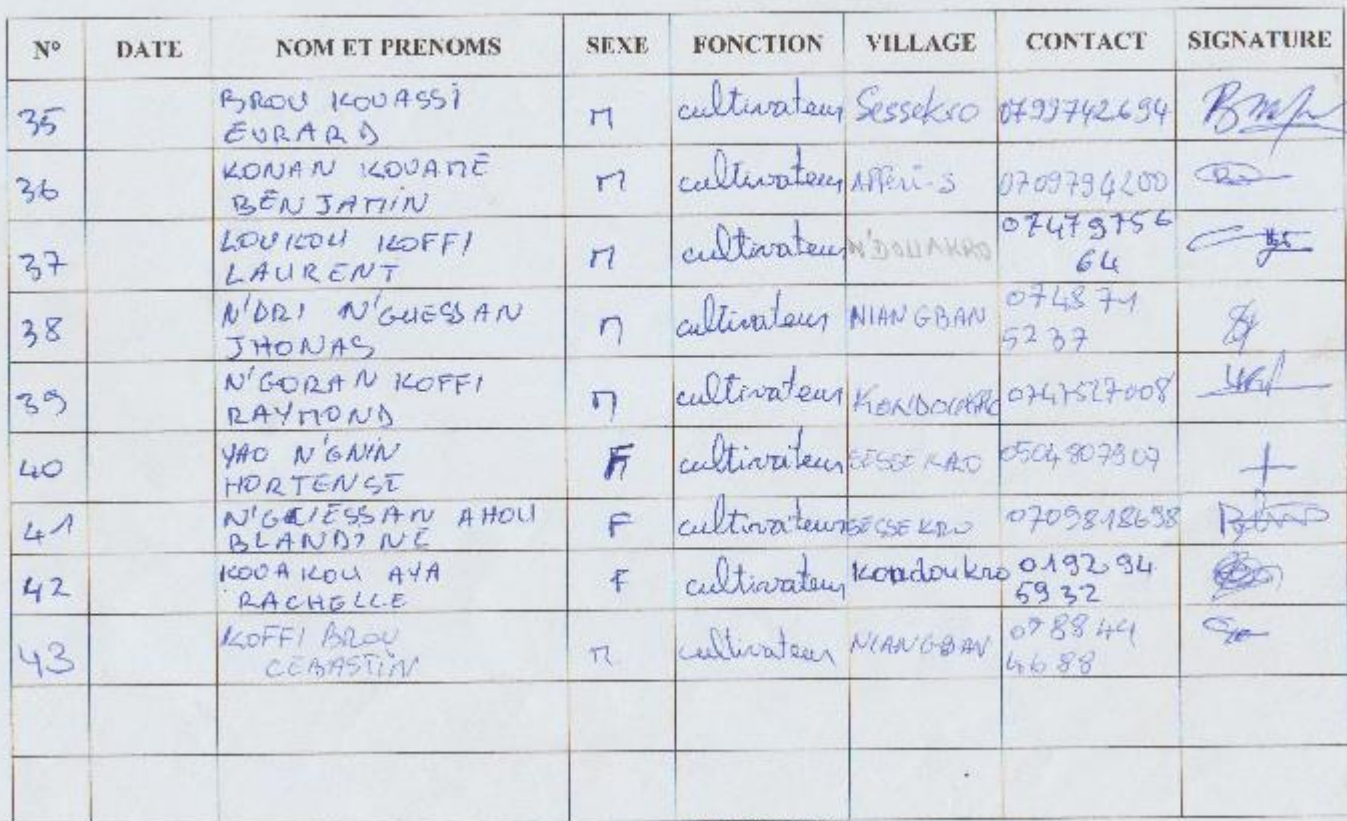 N° DATE NOM ET PRENOMS SEXE FONCTION VILLAGE CONTACT SIGNATURE
35 BROU KOUASSI EVRARD M cultivateur Sessekro 0799742694
36 KONAN KOUAMÉ BENJAMIN M cultivateur Afféri-S 0709794200
37 LOUKOU KOFFI LAURENT M cultivateur N'DOUAKRO 0747975664
38 N'DRI N'GUESSAN JHONAS M cultivateur NIANGBAN 0748 71 5237
39 N'GORAN KOFFI RAYMOND M cultivateur 0747527008
40 YAO N'GNIN HORTENSE F cultivateur SESSEKRO 0504807907
41 N'GUESSAN AHOU BLANDINE F cultivateur SESSEKRO 0709818698
42 KOUAKOU AYA RACHELLE F cultivateur Kondoukro 0192 94 5932
43 KOFFI BROU CEBASTIN M cultivateur NIANGBAN 4688